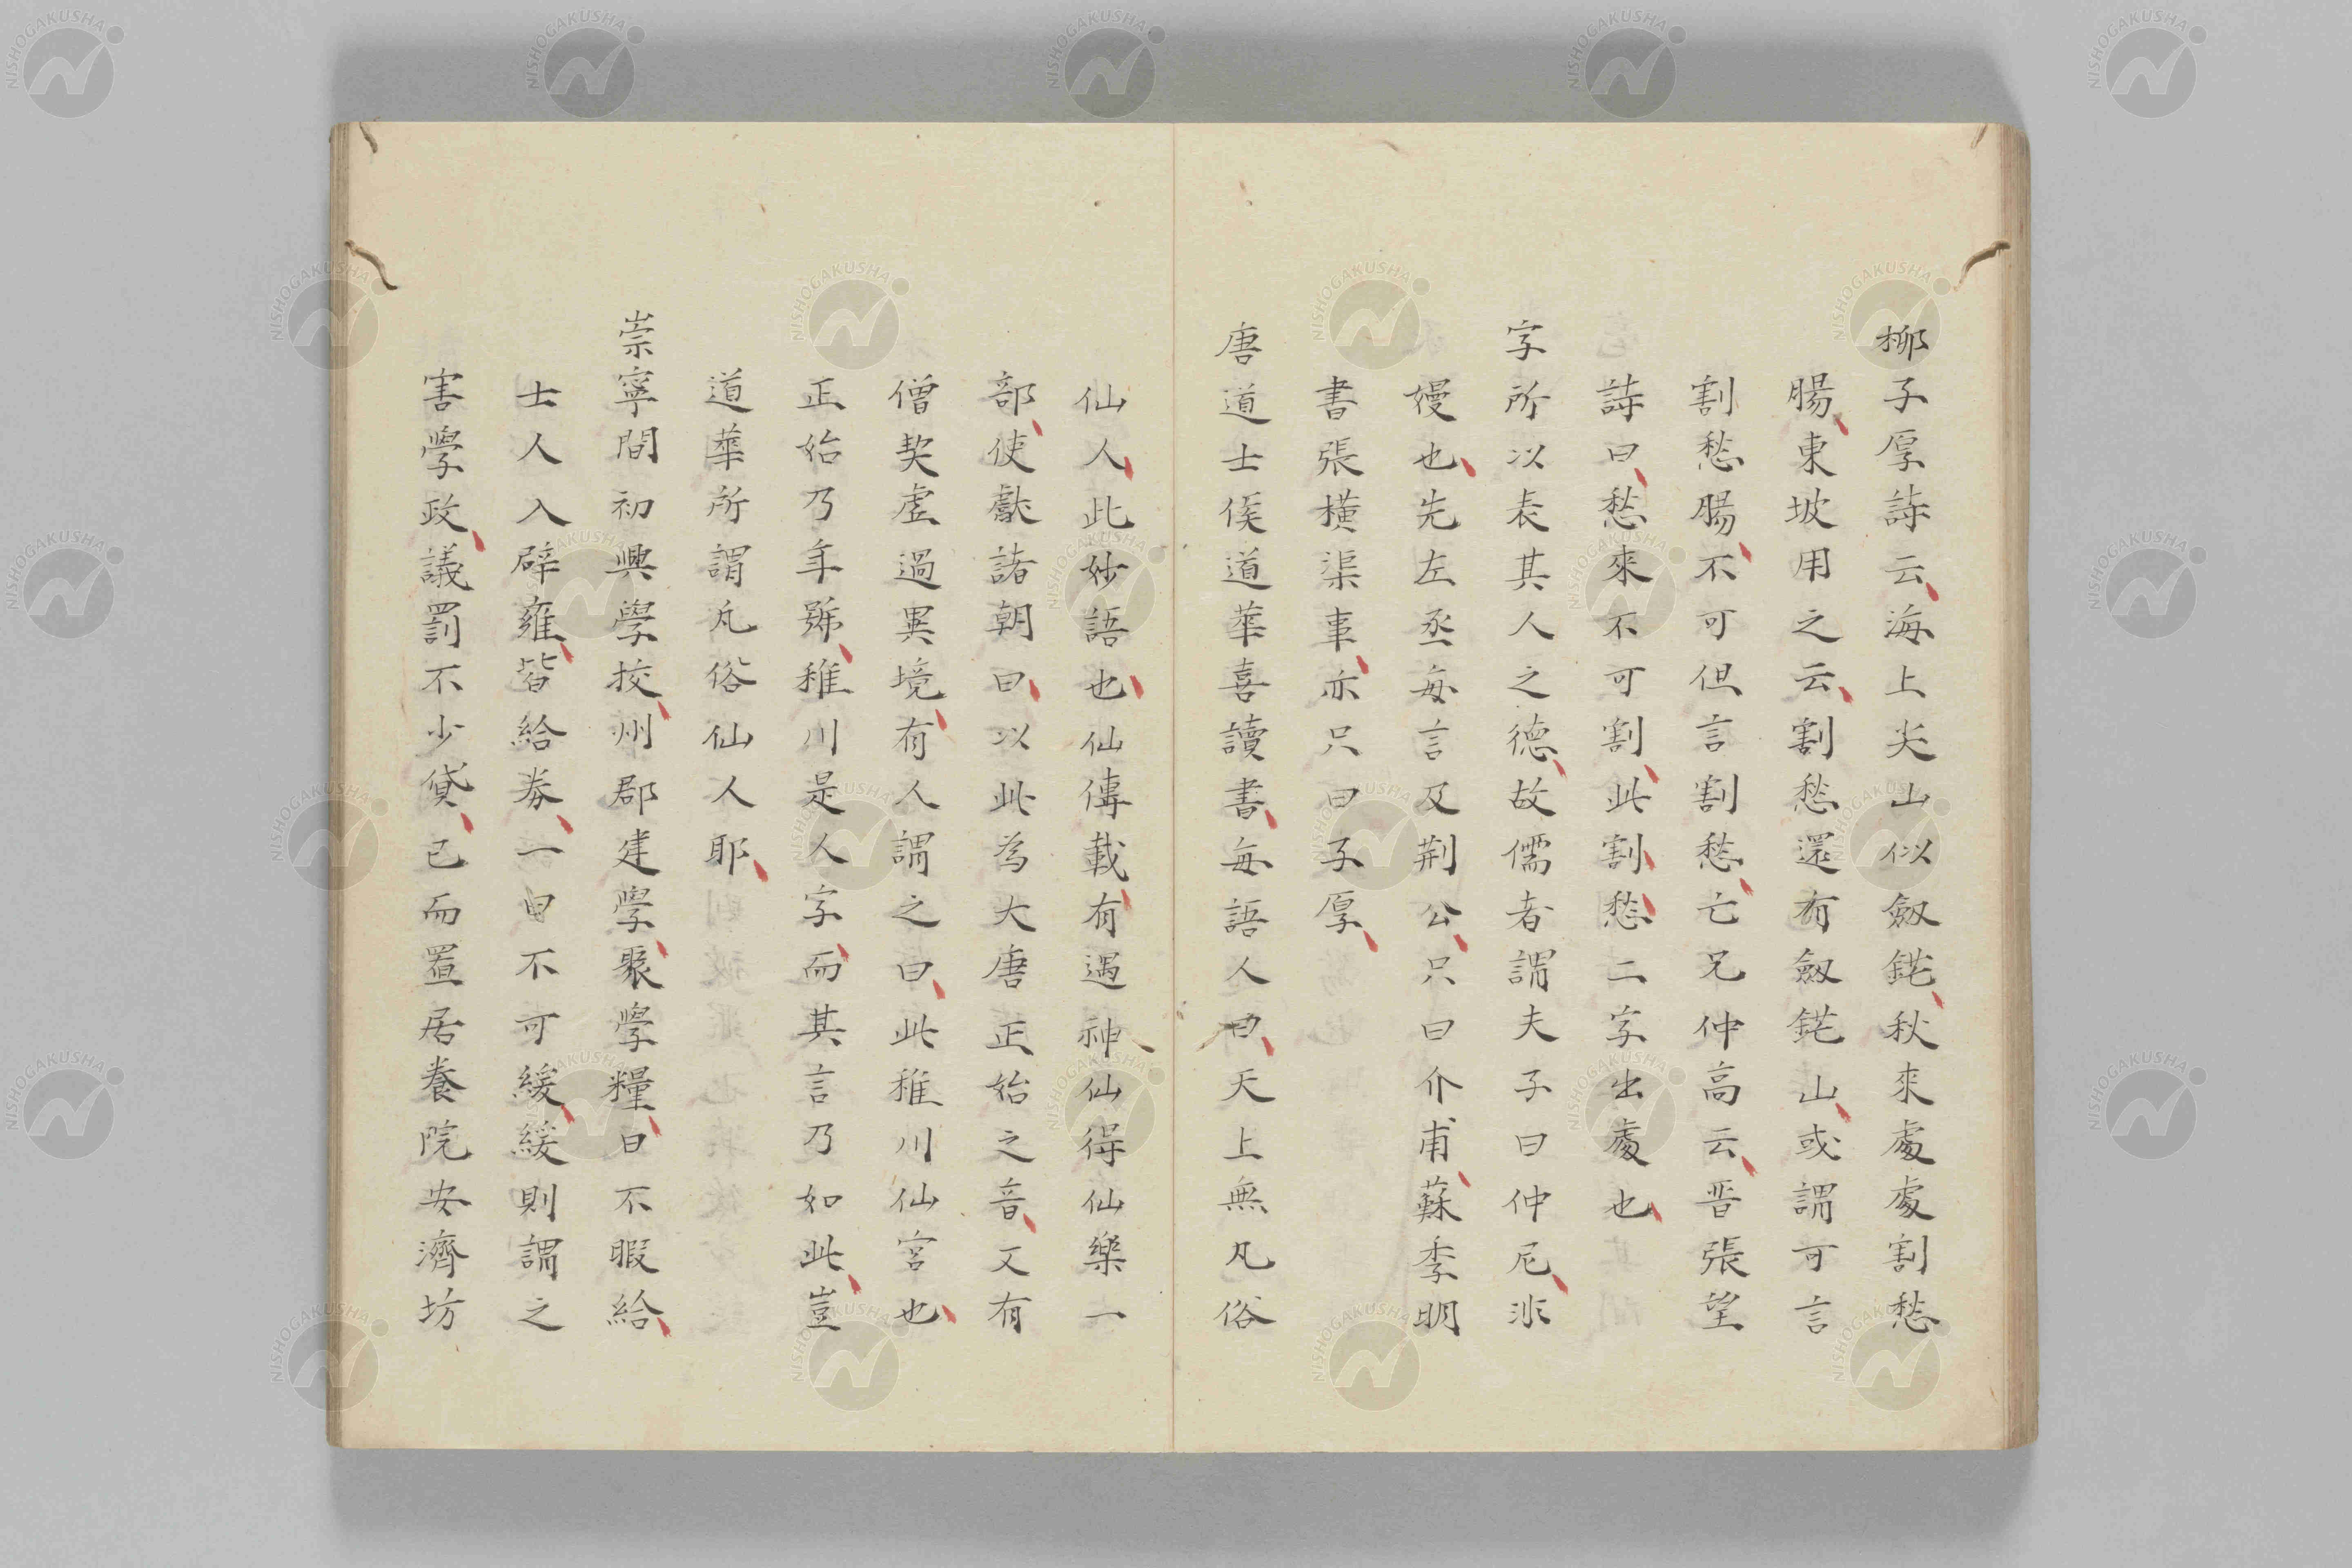 柳子厚詩云海上尖山似劔鋩秋來處處割愁
腸東坡用之云割愁還有劔鋩山或謂可言
割愁腸不可但言割愁亡兄仲高云晋張望
詩曰愁來不可割此割愁二字出處也
字所以表其人之德故儒者謂夫子曰仲尼非
嫚也先左丞每言及荆公只曰介甫蘇季明
書張橫渠事亦只曰子厚
唐道士侯道華喜讀書每語人曰天上無凡俗
仙人此妙語也仙傳載有遇神仙得仙樂一
部使獻諸朝曰以此為大唐正始之音又有
僧契虛過異境有人謂之曰此稚川仙宮也
正始乃年號稚川是人字而其言乃如此豈
道華所謂凡俗仙人耶
崇寧間初興學校州郡建學聚學糧日不暇給
士人入辟雍皆給券一日不可緩緩則謂之
害學政議罰不少貸已而置居養院安濟坊
NISHOGAKUSHA